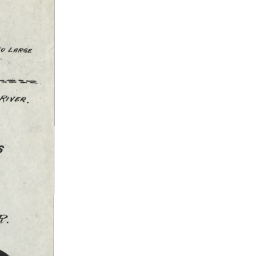 O LARGE
RIVER.
S
R.